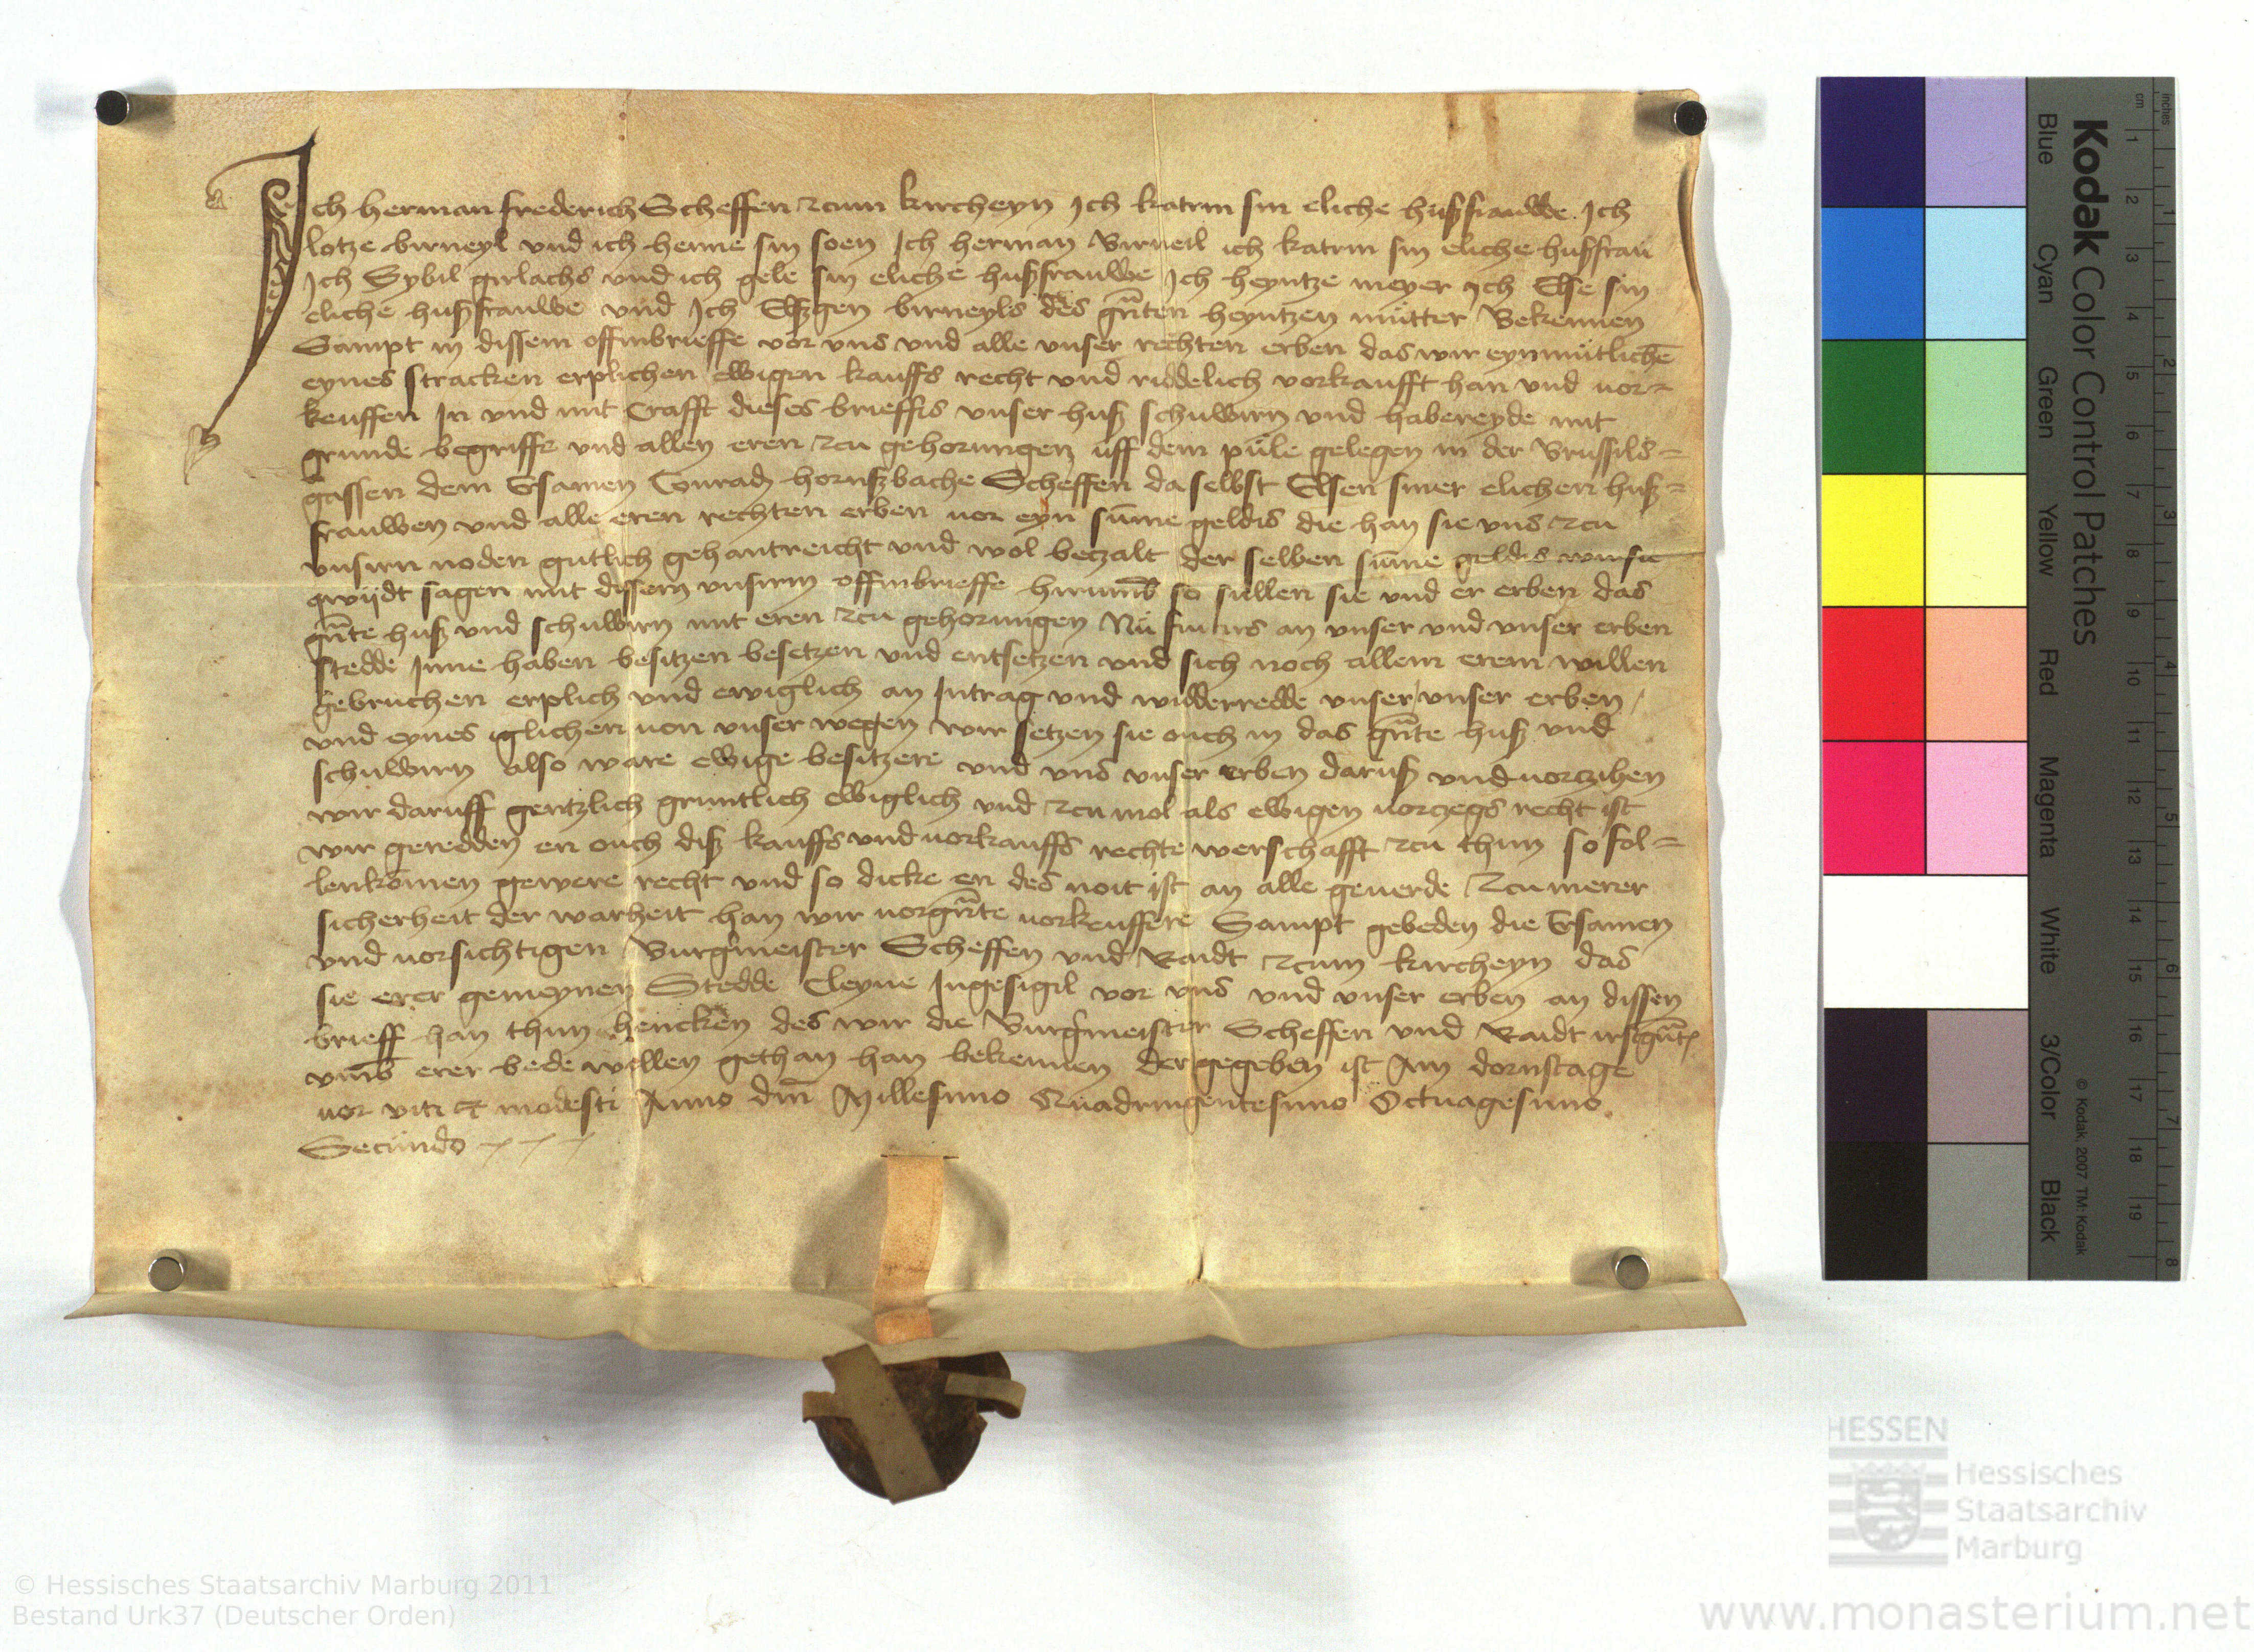 Ich herman frederich Scheffen zcum kircheyn Ich katrin sin eliche hußfrauwe Ich
lotze birneyl vnd ich henne sin soen Ich herman Birneil ich katrin sin eliche hußfrau
Ich Sybil girlachs vnd ich gele sin eliche hußfrauwe Ich heyntze meyer Ich Else sin
eliche hußfrauwe vnd Ich Elßgen birneyls des gnten heyntzen mutter Bekennen
Sampt in dissem offinbrieffe vor vns vnd alle vnser rechten erben das wir eynmutlichē
eynes stracken erplichen ewigen kauffs recht vnd riddelich vorkaufft han vnd uor=
keuffen In vnd mit Crafft dieses brieffis vnser huß schuwirn vnd habereyde mit
grunde begriffe vnd allen eren zcu gehorungen uff dem pule gelegen in der Brussils=
gassen dem Ersamen Conrad hornßbache Scheffen da selbst Elsen siner elichen huß=
frauwen vnd alle eren rechten erben uor eyn sūme geldis die han sie vns zcu
vnsirn noden gutlich gehantreicht vnd wol beczalt der selben sūme geldis wir sie
qwijdt sagen mit dissem vnsirm offinbrieffe hirumb so sullen sie vnd er erben das
gnte huß vnd schuwirn mit eren zcu gehorungen Nu furters an vnser vnd vnser erben
stedde Inne haben besitzen besetzen vnd entsetzen vnd sich noch allem erem willen
gebruchen erplich vnd ewiglich an Intrag vnd widderredde vnser vnser erben /
vnd eynes iglichen uon vnser wegen wir setzen sie ouch in das gnte huß vnd
schuwirn also ware ewige besitzere vnd vns vnser erben daruß vnd uorczihen
wir daruff gentzlich gruntlich ewiglich vnd zcu mol als ewigen uorczegs recht ist
wir geredden en ouch diß kauffs vnd uorkauffs rechte werschafft zcu thun so fol=
lenkōmen gewere recht vnd so dicke en des noit ist an alle geuerde Zcu merer
sicherheit der warheit han wir uorgnte uorkeuffere Sampt gebeden die Ersamen
vnd uorsichtigen Burgmeister Scheffen vnd Raidt zcum kircheyn das
sie erer gemeynen Stedde Cleyne Ingesigil vor vns vnd vnser erben an dissen
brieff han thun hencken des wir die Burgmeister Scheffen vnd Raidt irstgnt
vmb erer bede willen gethan han bekennen der gegeben ist Am dornstage
uor viti et modesti Anno dm Millesimo Quadringentesimo Octuagesimo
Secundo
Kodak Color Control Patches
Blue
Cyan
Green
Yellow
Red
Magenta
White
3/Color
Black
© Kodak, 2007 TM: Kodak
cm 1 2 3 4 5 6 7 8 9 10 11 12 13 14 15 16 17 18 19
inches 1 2 3 4 5 6 7 8
HESSEN
Hessisches
Staatsarchiv
Marburg
© Hessisches Staatsarchiv Marburg 2011
Bestand Urk37 (Deutscher Orden)
www.monasterium.net